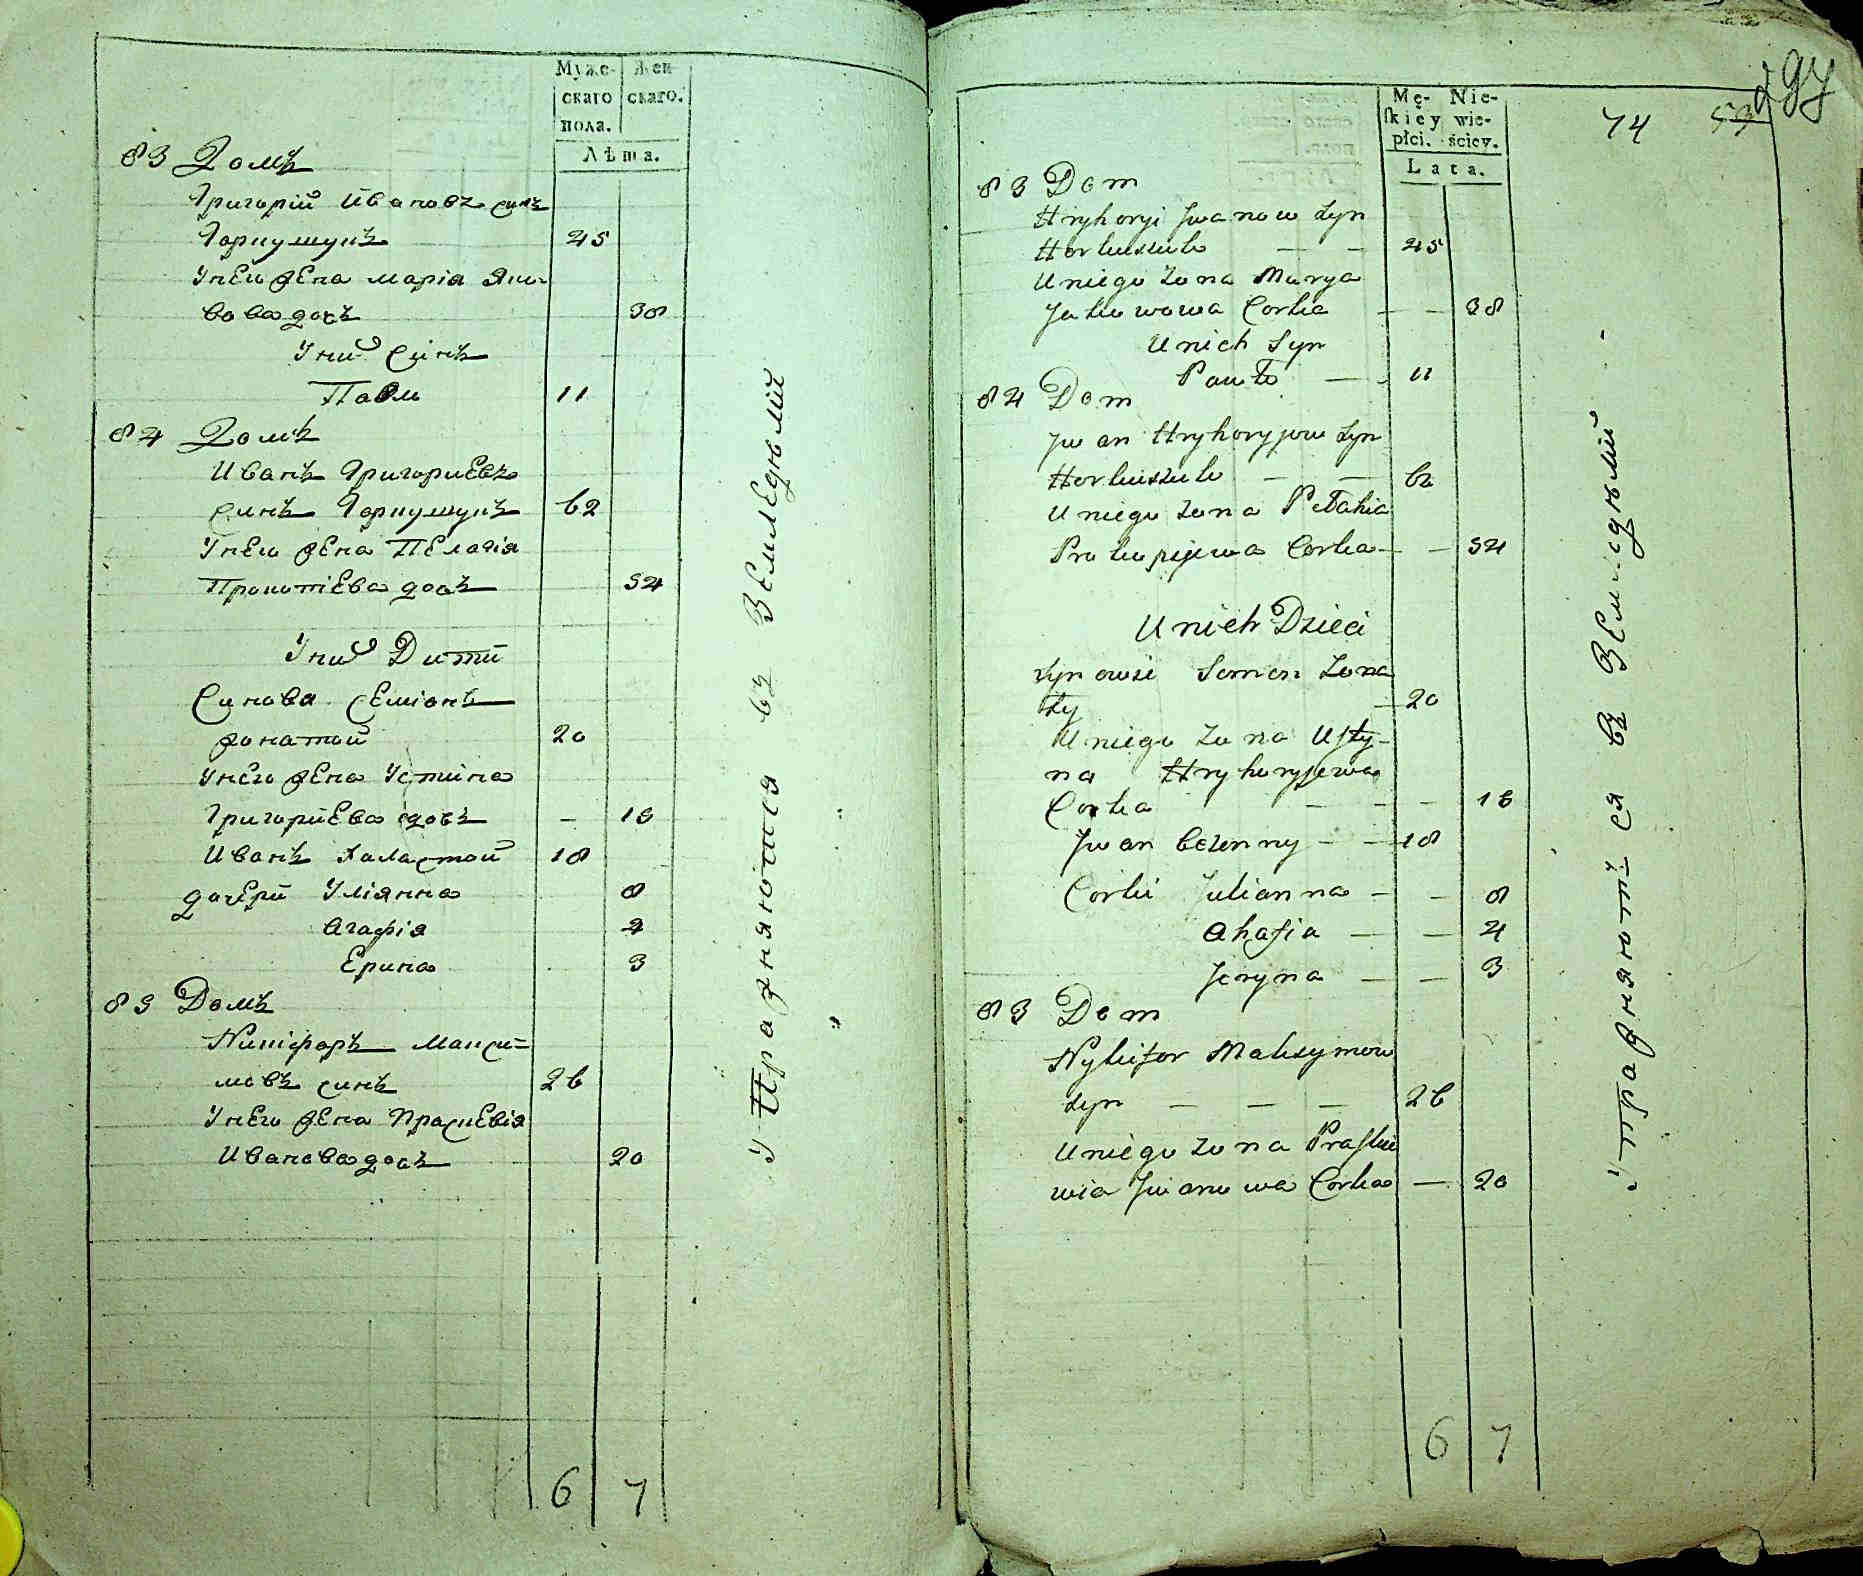 Муже- Жен-
скаго скаго.
пола.
Лѣта.
83 Домъ
Григорій Ивановъ синъ
Горкушукъ 45
Унего жена Марія Яко-
вова дочъ 38
Уних синъ
Павло 11
84 Домъ
Иванъ Григориевъ
синъ Горкушукъ 62
Унего жена Пелагія
Прокопіева дочъ 54
Уних Дити
Синова Семіонъ
жонатой 20
Унего жена Устина
Григориева дочъ - 16
Иванъ Халастой 18
дочери Уліянна 8
Агафія 4
Ерина 3
83 Домъ
Никифоръ Макси-
мовъ синъ 26
Унего жена Праскевія
Иванова дочъ 20
6 7
Упражняются въ Земледѣлій
297
74 53
Mę- Nie-
ſkiey wie-
płci. ściey.
Lata.
83 Dom
Hryhoryi Jwanow Syn
Horkuszuk — — 45
Uniego Zona Marya
Jakowowa Corka — — 38
Unich Syn
Pawło — 11
84 Dom
Jwan Hryhoryjow Syn
Horkuszuk — — 62
Uniego Zona Pełahia
Prokopijewa Corka — — 54
Unich Dzieci
Synowie Semen Zona
ty — 20
Uniego Zona Uſty-
na Hryhoryjewa
Corka — — — 16
Jwan bezenny — — 18
Corki Julianna — — 8
Ahafia — — 4
Jeryna — — 3
83 Dom
Nykifor Maksymow
Syn — — — 26
Uniego Zona Praſkie
wia Jwanowa Corka — 20
6 7
Упражняют-ся въ Земледѣлій